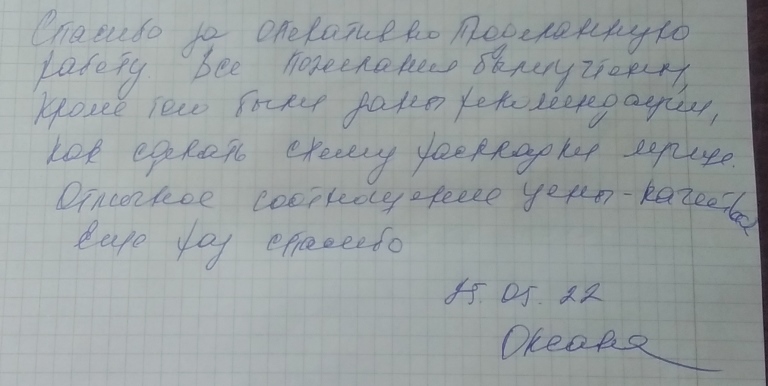 Спасибо за оперативно проделанную
работу. Все пожелания были учтены,
кроме того были даны рекомендации,
как сделать схему раскладки лучше.
Отличное соотношение цены-качества
Еще раз спасибо
25.05.22
Оксана